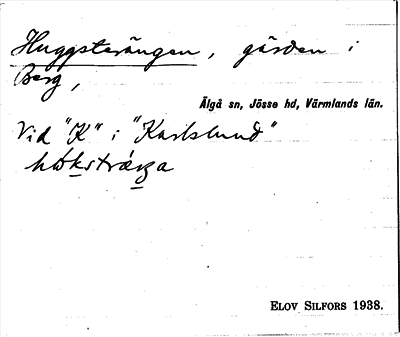 Huggsterängen, gården i
Berg,
Älgå sn, Jösse hd, Värmlands län.
Vid "K" i "Karlslund"
ELOV SILFORS 1938.